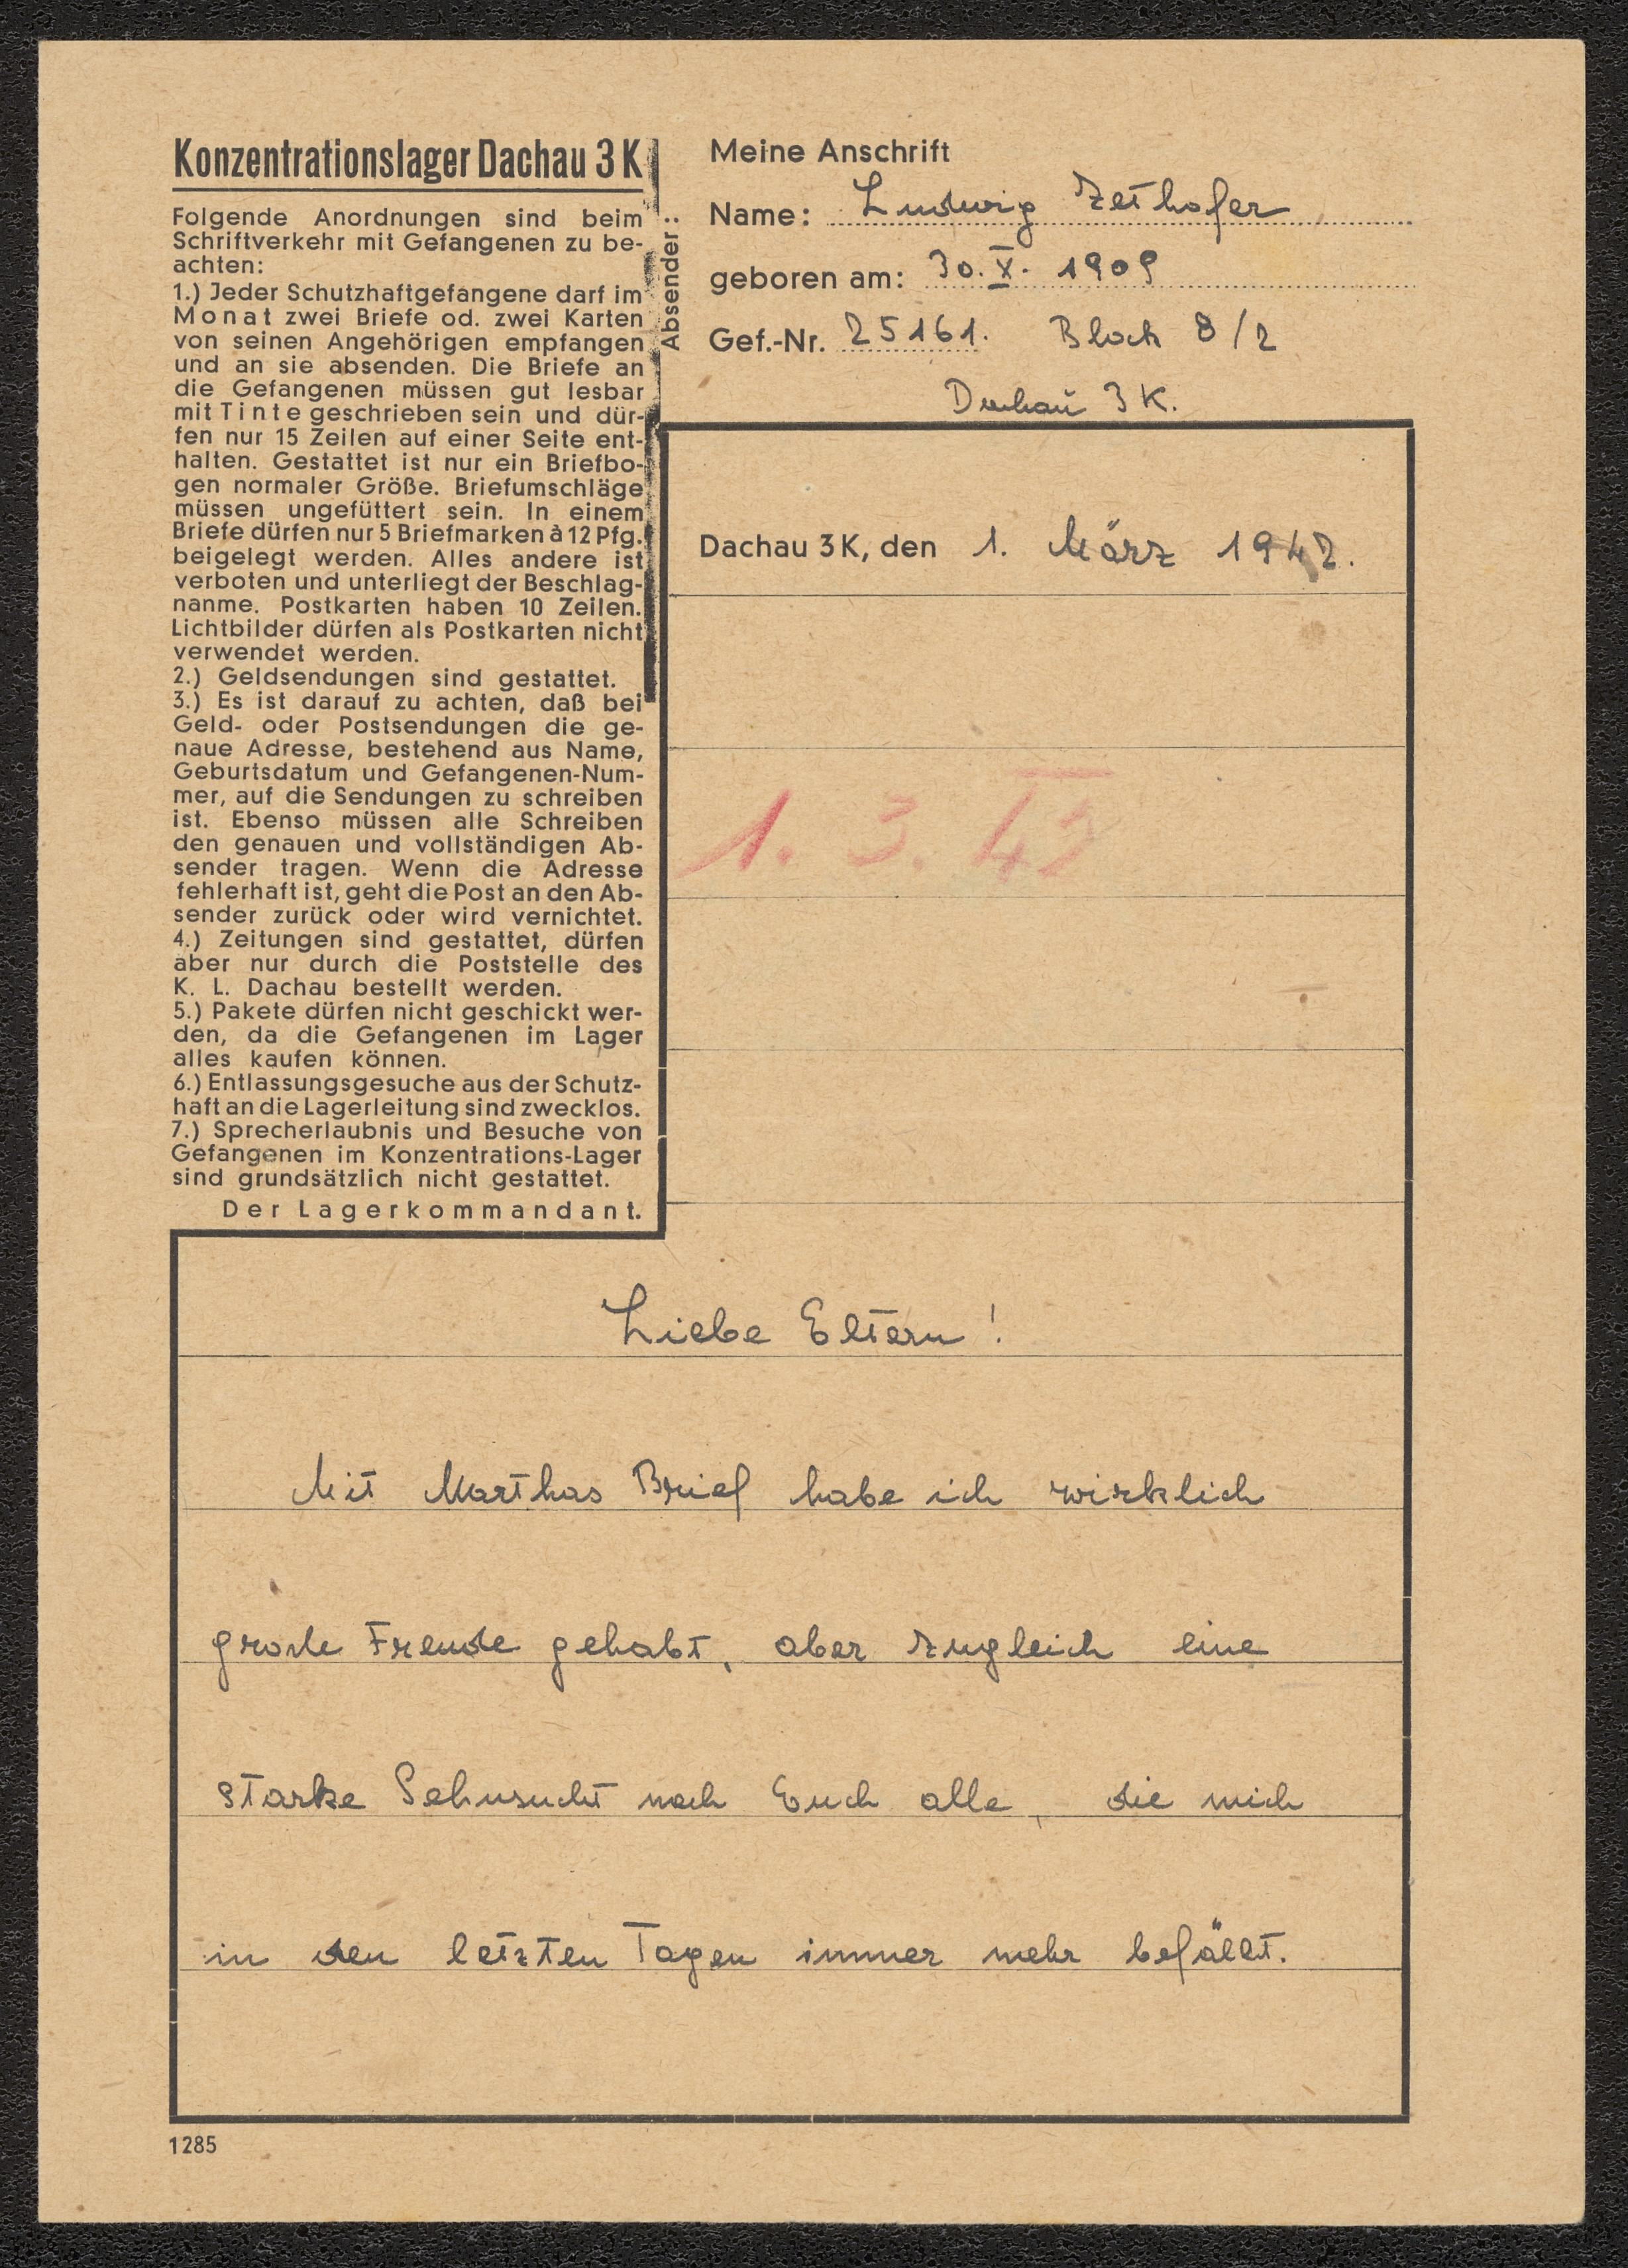 Konzentrationslager Dachau 3 K
Folgende Anordnungen sind beim
Schriftverkehr mit Gefangenen zu be-
achten:
1.) Jeder Schutzhaftgefangene darf im
Monat zwei Briefe od. zwei Karten
von seinen Angehörigen empfangen
und an sie absenden. Die Briefe an
die Gefangenen müssen gut lesbar
mit Tinte geschrieben sein und dür-
fen nur 15 Zeilen auf einer Seite ent-
halten. Gestattet ist nur ein Briefbo-
gen normaler Größe. Briefumschläge
müssen ungefüttert sein. In einem
Briefe dürfen nur 5 Briefmarken à 12 Pfg.
beigelegt werden. Alles andere ist
verboten und unterliegt der Beschlag-
nanme. Postkarten haben 10 Zeilen.
Lichtbilder dürfen als Postkarten nicht
verwendet werden.
2.) Geldsendungen sind gestattet.
3.) Es ist darauf zu achten, daß bei
Geld- oder Postsendungen die ge-
naue Adresse, bestehend aus Name,
Geburtsdatum und Gefangenen-Num-
mer, auf die Sendungen zu schreiben
ist. Ebenso müssen alle Schreiben
den genauen und vollständigen Ab-
sender tragen. Wenn die Adresse
fehlerhaft ist, geht die Post an den Ab-
sender zurück oder wird vernichtet.
4.) Zeitungen sind gestattet, dürfen
aber nur durch die Poststelle des
K. L. Dachau bestellt werden.
5.) Pakete dürfen nicht geschickt wer-
den, da die Gefangenen im Lager
alles kaufen können.
6.) Entlassungsgesuche aus der Schutz-
haft an die Lagerleitung sind zwecklos.
7.) Sprecherlaubnis und Besuche von
Gefangenen im Konzentrations-Lager
sind grundsätzlich nicht gestattet.
Der Lagerkommandant.
Absender:
Meine Anschrift
Name: Ludwig Zethofer
geboren am: 30. X. 1909
Gef.-Nr. 25161. Block 8/2
Dachau 3 K.
Dachau 3 K, den 1. März 1942.
1. 3. 42
Liebe Eltern!
Mit Marthas Brief habe ich wirklich
große Freude gehabt, aber zugleich eine
starke Sehnsucht nach Euch alle, die mich
in den letzten Tagen immer mehr befällt.
1285